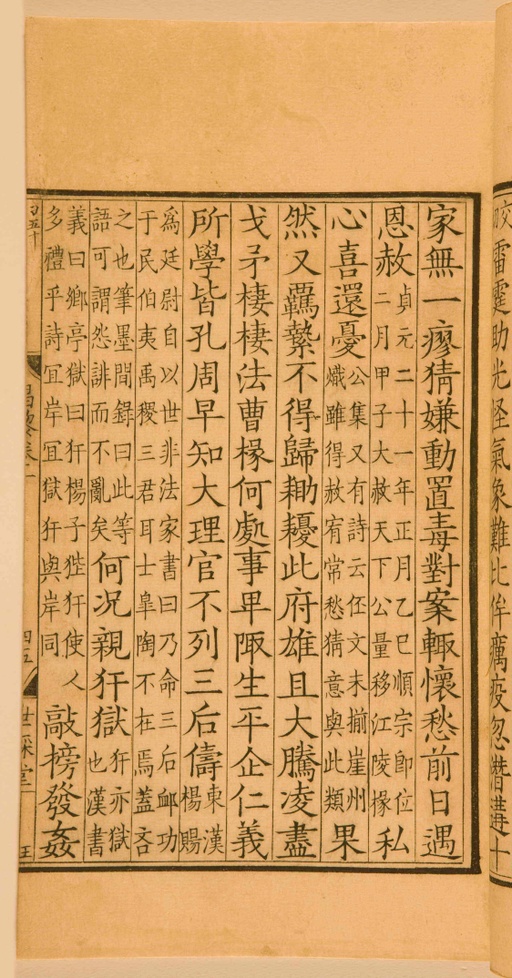 雷霆助光怪氣象難比侔癘疫忽潛遘十
家無一瘳猜嫌動置毒對案輒懷愁前日遇
恩赦
貞元二十一年正月乙巳順宗即位
二月甲子大赦天下公量移江陵掾
私
心喜還憂
公集又有詩云伾文未揃崖州
熾雖得赦宥常愁猜意與此類
果
然又羈縶不得歸耡耰此府雄且大騰凌盡
戈矛棲棲法曹掾何處事卑陬生平企仁義
所學皆孔周早知大理官不列三后儔
東漢
楊賜
爲廷尉自以世非法家書曰乃命三后卹功
于民伯夷禹稷三君耳士皐陶不在焉蓋吝
之也筆墨間錄曰此等
語可謂怨誹而不亂矣
何況親犴獄
犴亦獄
也漢書
義曰鄉亭獄曰犴楊子狴犴使人
多禮乎詩冝岸冝獄犴與岸同
敲榜發姦
五十
四五
世綵堂